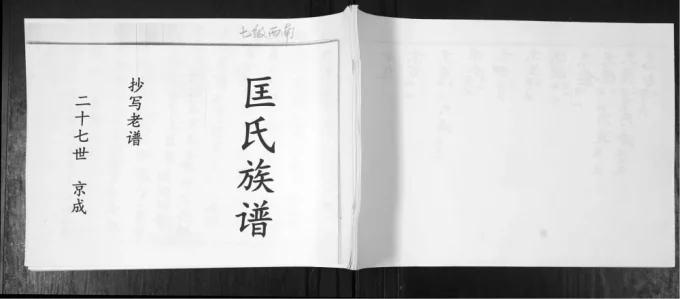 七级西角
匡氏族谱
抄写老谱
二十七世 京成